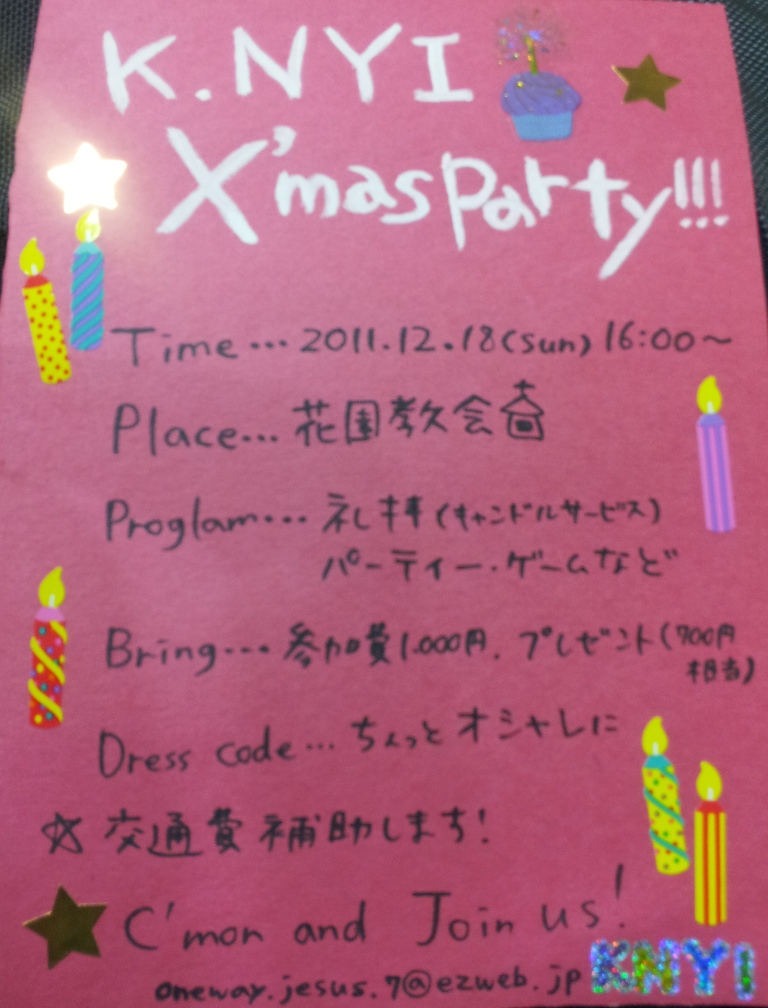 K.NYI
X'mas Party!!!
Time… 2011.12.18(sun) 16:00~
Place… 花園教会
Proglam… 礼拝(キャンドルサービス)
パーティー・ゲームなど
Bring… 参加費1.000円、プレゼント(700円
相当)
Dress code… ちょっとオシャレに
☆ 交通費補助します!
C'mon and Join us!
oneway.jesus.7@ezweb.jp
KNYI